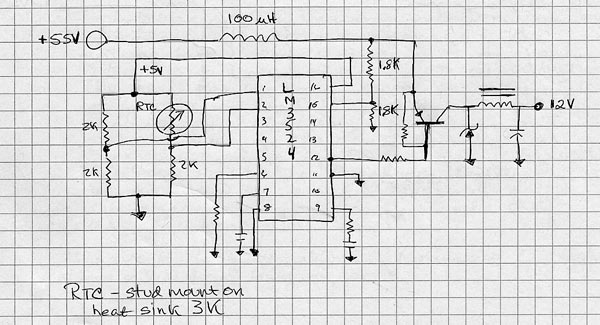 100 µH
+55V
+5V
1.8K
RTC
1 L 16
2 M 15
3 3 14
4 5 13
5 2 12
6 4 11
7 10
8 9
1.8K
12V
2K
2K
2K
RTC - stud mount on
heat sink 3K